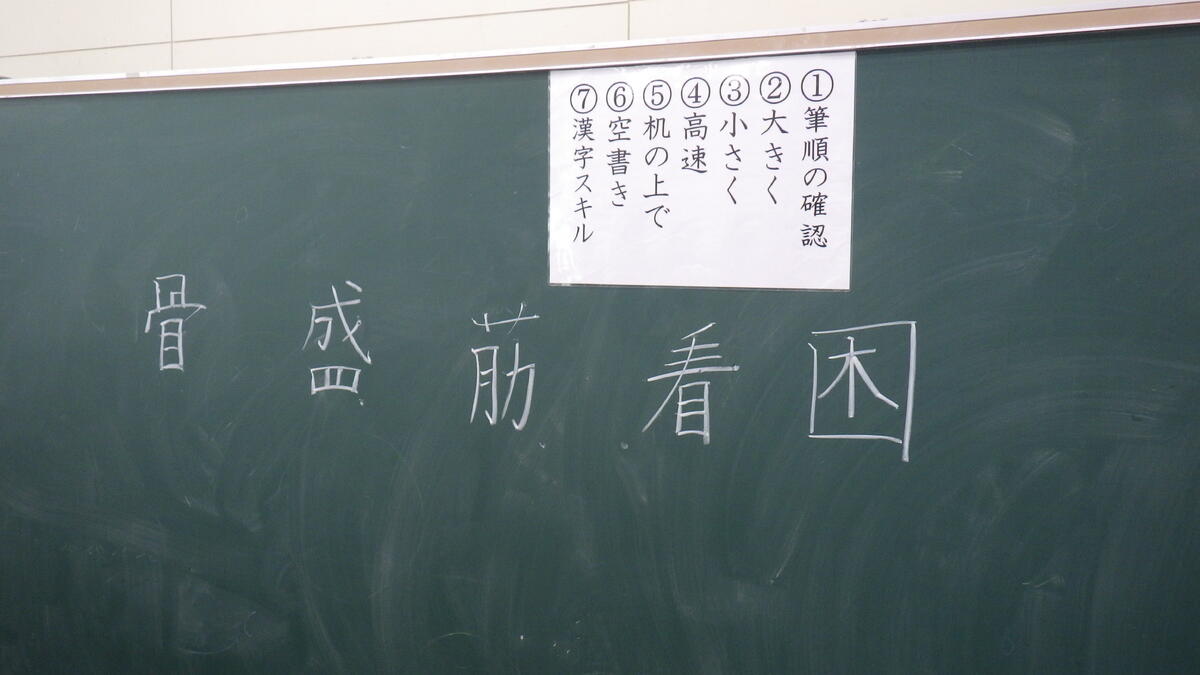 ①筆順の確認
②大きく
③小さく
④高速
⑤机の上で
⑥空書き
⑦漢字スキル
困
看
筋
盛
骨